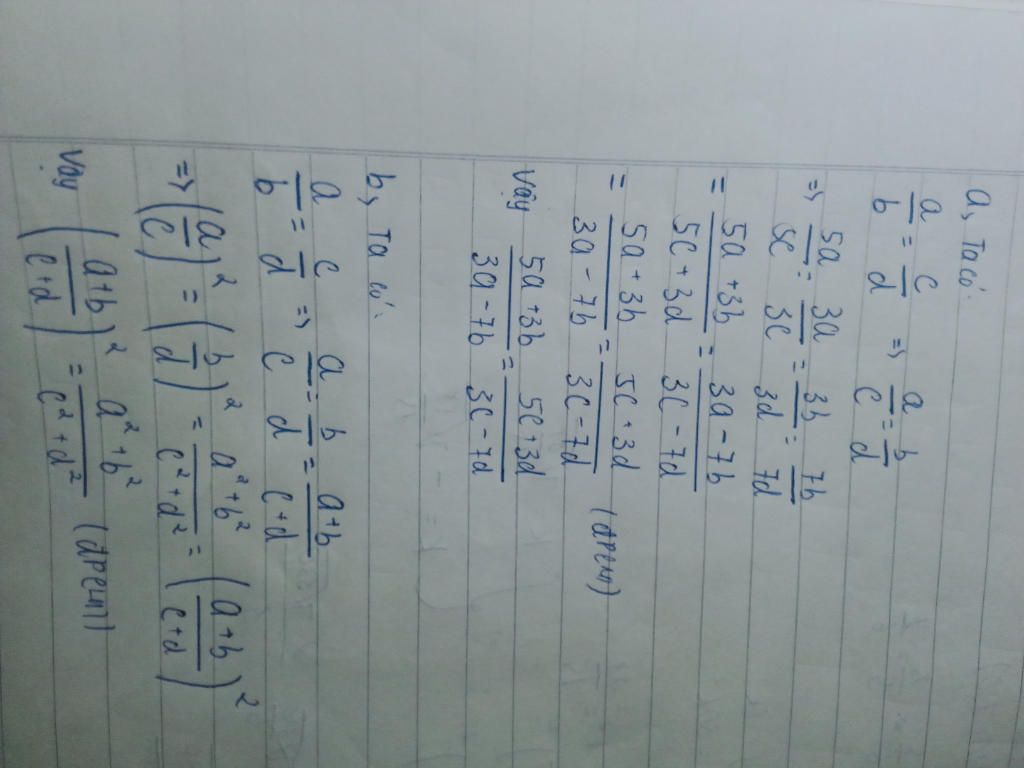 a, Ta có:
a/b = c/d => a/c = b/d
=> 5a/5c = 3a/3c = 3b/3d = 7b/7d
= 5a+3b/5c+3d = 3a-7b/3c-7d
= 5a+3b/3a-7b = 5c+3d/3c-7d (đpcm)
Vậy 5a+3b/3a-7b = 5c+3d/3c-7d
b, Ta có:
a/b = c/d => a/c = b/d = a+b/c+d
=> (a/c)² = (b/d)² = a²+b²/c²+d² = (a+b/c+d)²
Vậy (a+b/c+d)² = a²+b²/c²+d² (đpcm)